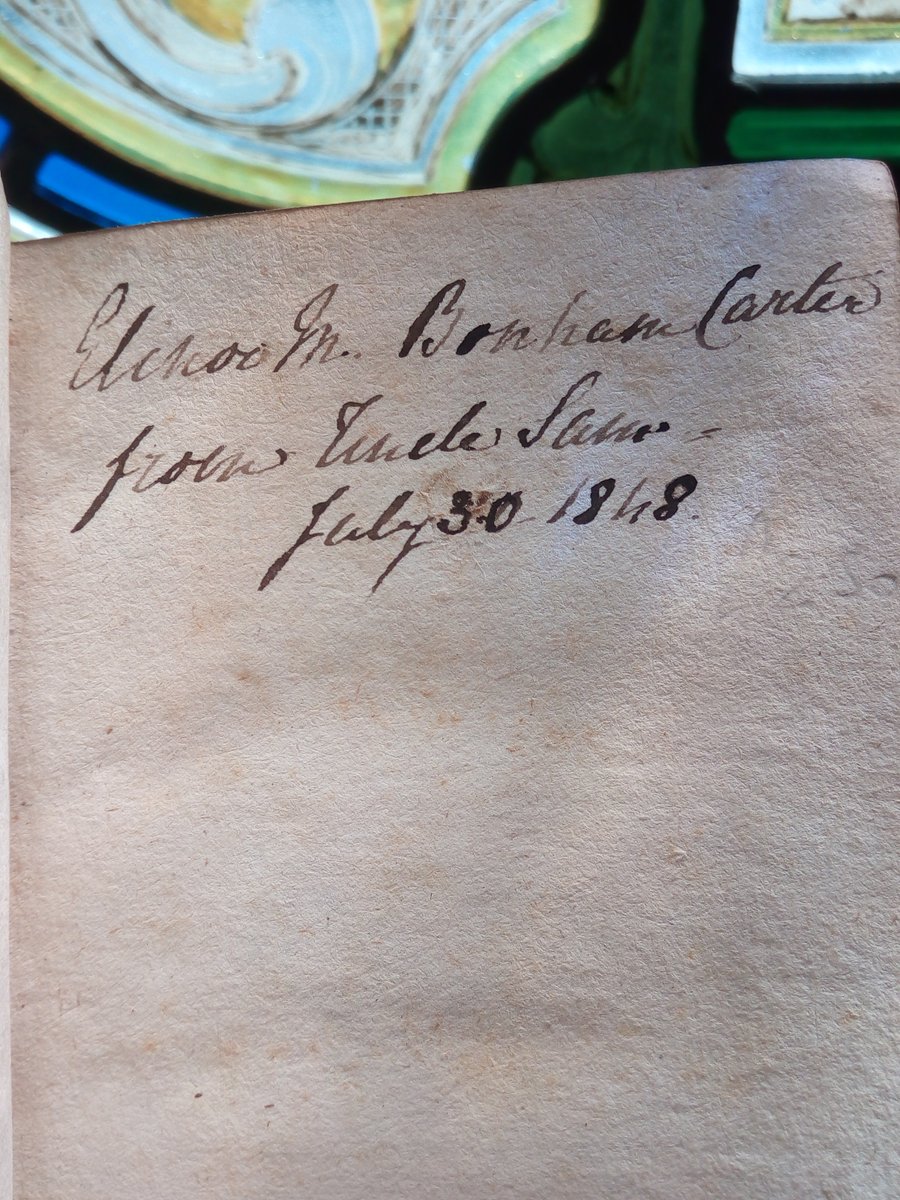 Elinor M. Bonham Carter
from Uncle Sam -
July 30 1848.